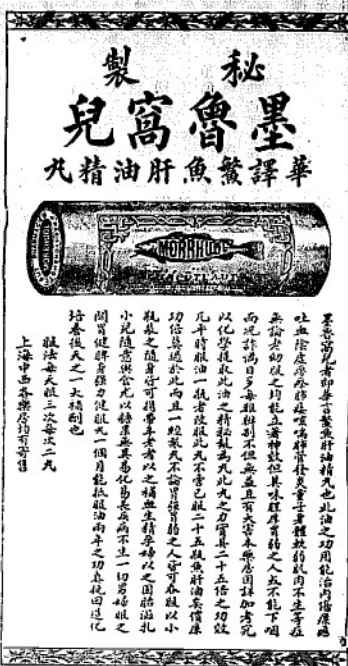 秘製
墨魯窩兒
華譯鰵魚肝油精丸
MORRHUOL
墨魯窩兒者即華言鰵魚肝油精丸也此油之功用能治內傷癆瘵
吐血陰虛療痧肺痿咳喘肺管發炎童子身體軟弱肌肉不生等症
無論老幼服之均能立著神效但其味腥厚胃弱之人或不能下咽
而況詐偽日多每難辨別不但無益且有大害本藥房因詳加考究
以化學提取此油之精粹製為丸此丸之力實具二十五倍之功效
凡平時服油一瓶者改服此丸不啻已服二十五瓶魚肝油矣價廉
功倍莫過於此而且一經製丸不論胃強胃弱之人皆可吞服以小
瓶裝之隨身皆可攜帶年老者以之補血生精孕婦以之固胎
小兒隨意與食尤以 無異易化易長疾病不生一切男婦服之
開胃健脾身強力健服丸一個月能抵服油兩年之功真挽回造化
培養後天之一大補劑也
服法每天服三次每次二丸
上海中西各藥房均有寄售